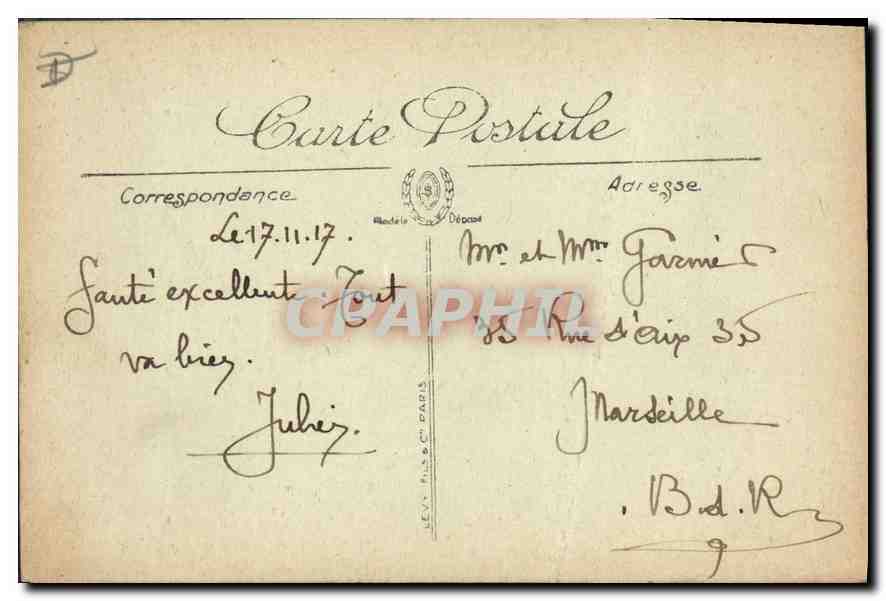 D
Carte Postale
Correspondance
Adresse
Modèle Déposé
Le 17.11.17.
Santé excellente. Tout
va bien.
Julien.
LEVY FILS & Cie PARIS
Mr. et Mme Garnier
35 Rue d'Aix 35
Marseille
. B. d. R
CPAPHIL